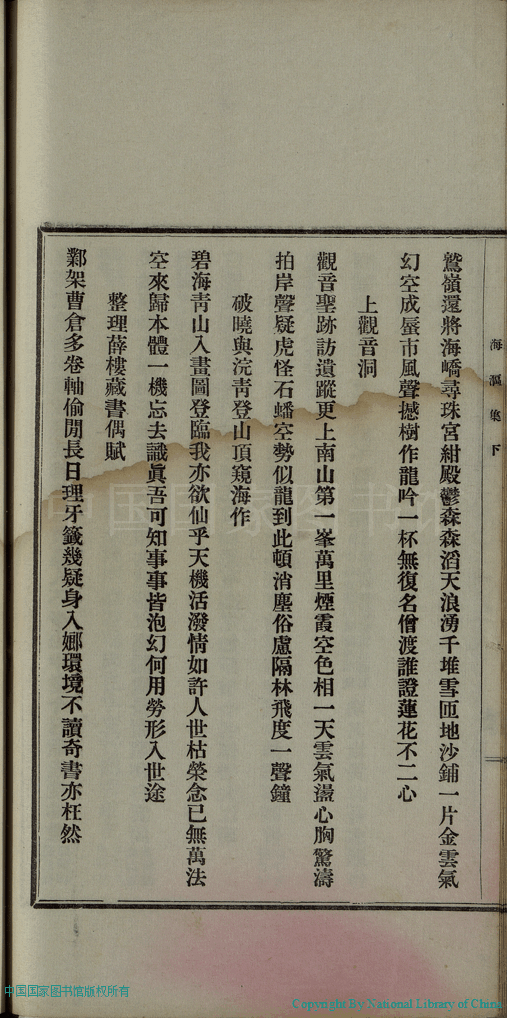 海漚集下
鷲嶺還將海嶠尋珠宮紺殿鬱森森滔天浪湧千堆雪匝地沙鋪一片金雲氣
幻空成蜃市風聲撼樹作龍吟一杯無復名僧渡誰證蓮花不二心
上觀音洞
觀音聖跡訪遺蹤更上南山第一峯萬里煙霞空色相一天雲氣盪心胸驚濤
拍岸聲疑虎怪石蟠空勢似龍到此頓消塵俗慮隔林飛度一聲鐘
破曉與浣靑登山頂窺海作
碧海靑山入畫圖登臨我亦欲仙乎天機活潑情如許人世枯榮念已無萬法
空來歸本體一機忘去識眞吾可知事事皆泡幻何用勞形入世途
整理薛樓藏書偶賦
鄴架曹倉多卷軸偷閒長日理牙籤幾疑身入嫏環境不讀奇書亦枉然
中国国家图书馆
中国国家图书馆版权所有
Copyright By National Library of China